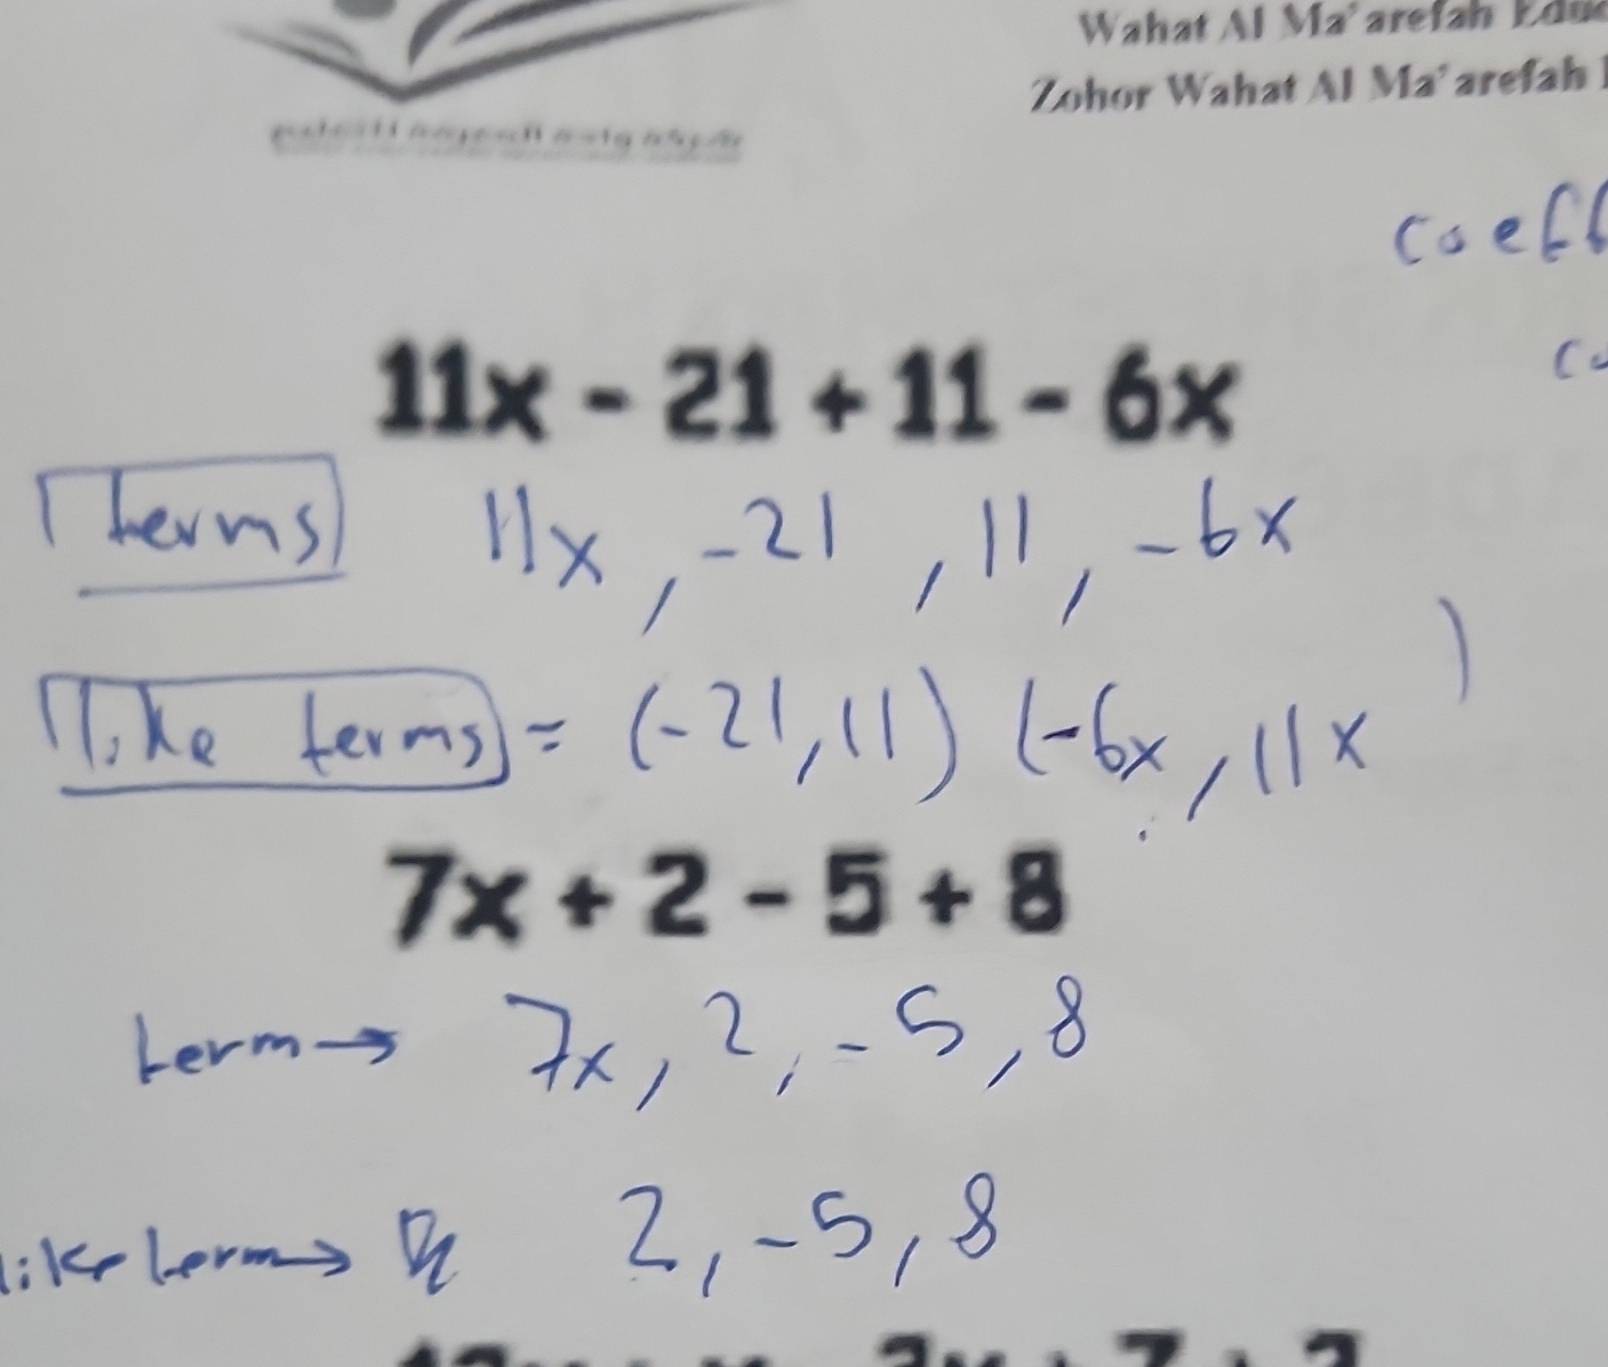 Wahat Al Ma'arefah
Zohor Wahat Al Ma'arefah
11x - 21 + 11 - 6x
terms 11x, -21, 11, -6x
like terms = (-21, 11) (-6x, 11x)
7x + 2 - 5 + 8
term → 7x, 2, -5, 8
like term → 2, -5, 8